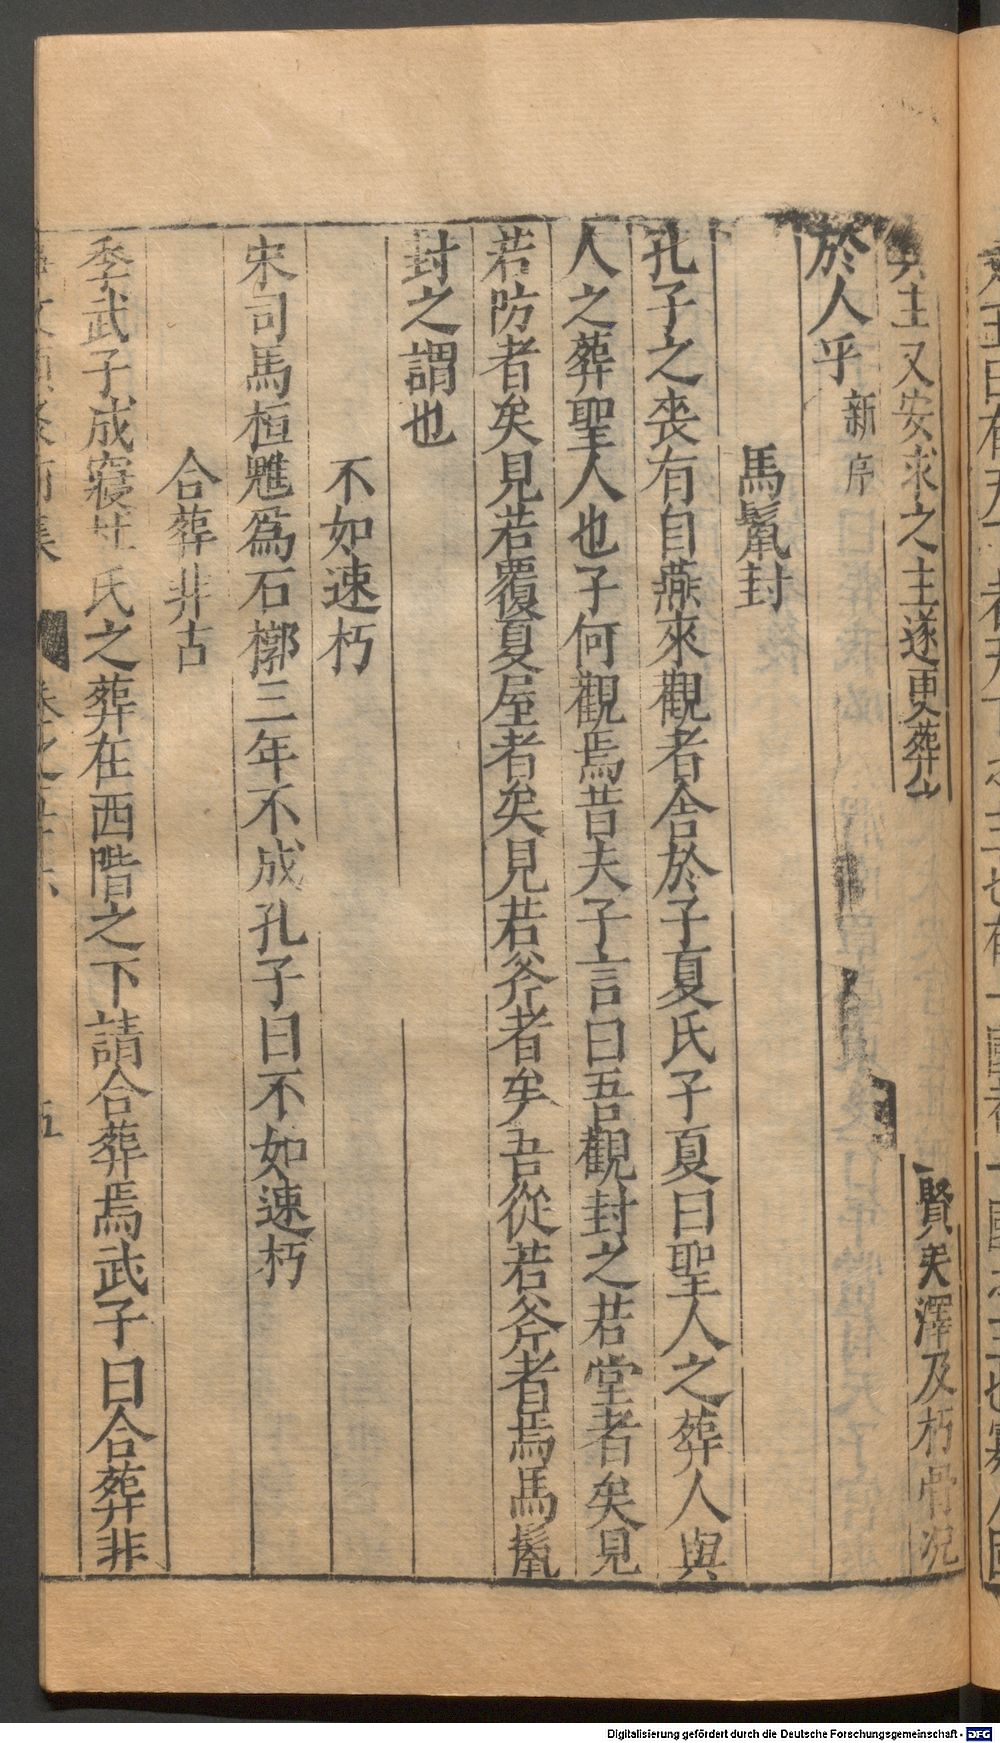 其主又安求之主遂更葬 賢矣澤及朽骨況
於人乎新序
馬鬣封
孔子之喪有自燕來觀者舍於子夏氏子夏曰聖人之葬人與
人之葬聖人也子何觀焉昔夫子言曰吾觀封之若堂者矣見
若防者矣見若覆夏屋者矣見若斧者矣吾從若斧者焉馬鬣
封之謂也
不如速朽
宋司馬桓魋爲石槨三年不成孔子曰不如速朽
合葬非古
季武子成寢杜氏之葬在西階之下請合葬焉武子曰合葬非
卷之五十六 五
Digitalisierung gefördert durch die Deutsche Forschungsgemeinschaft - DFG